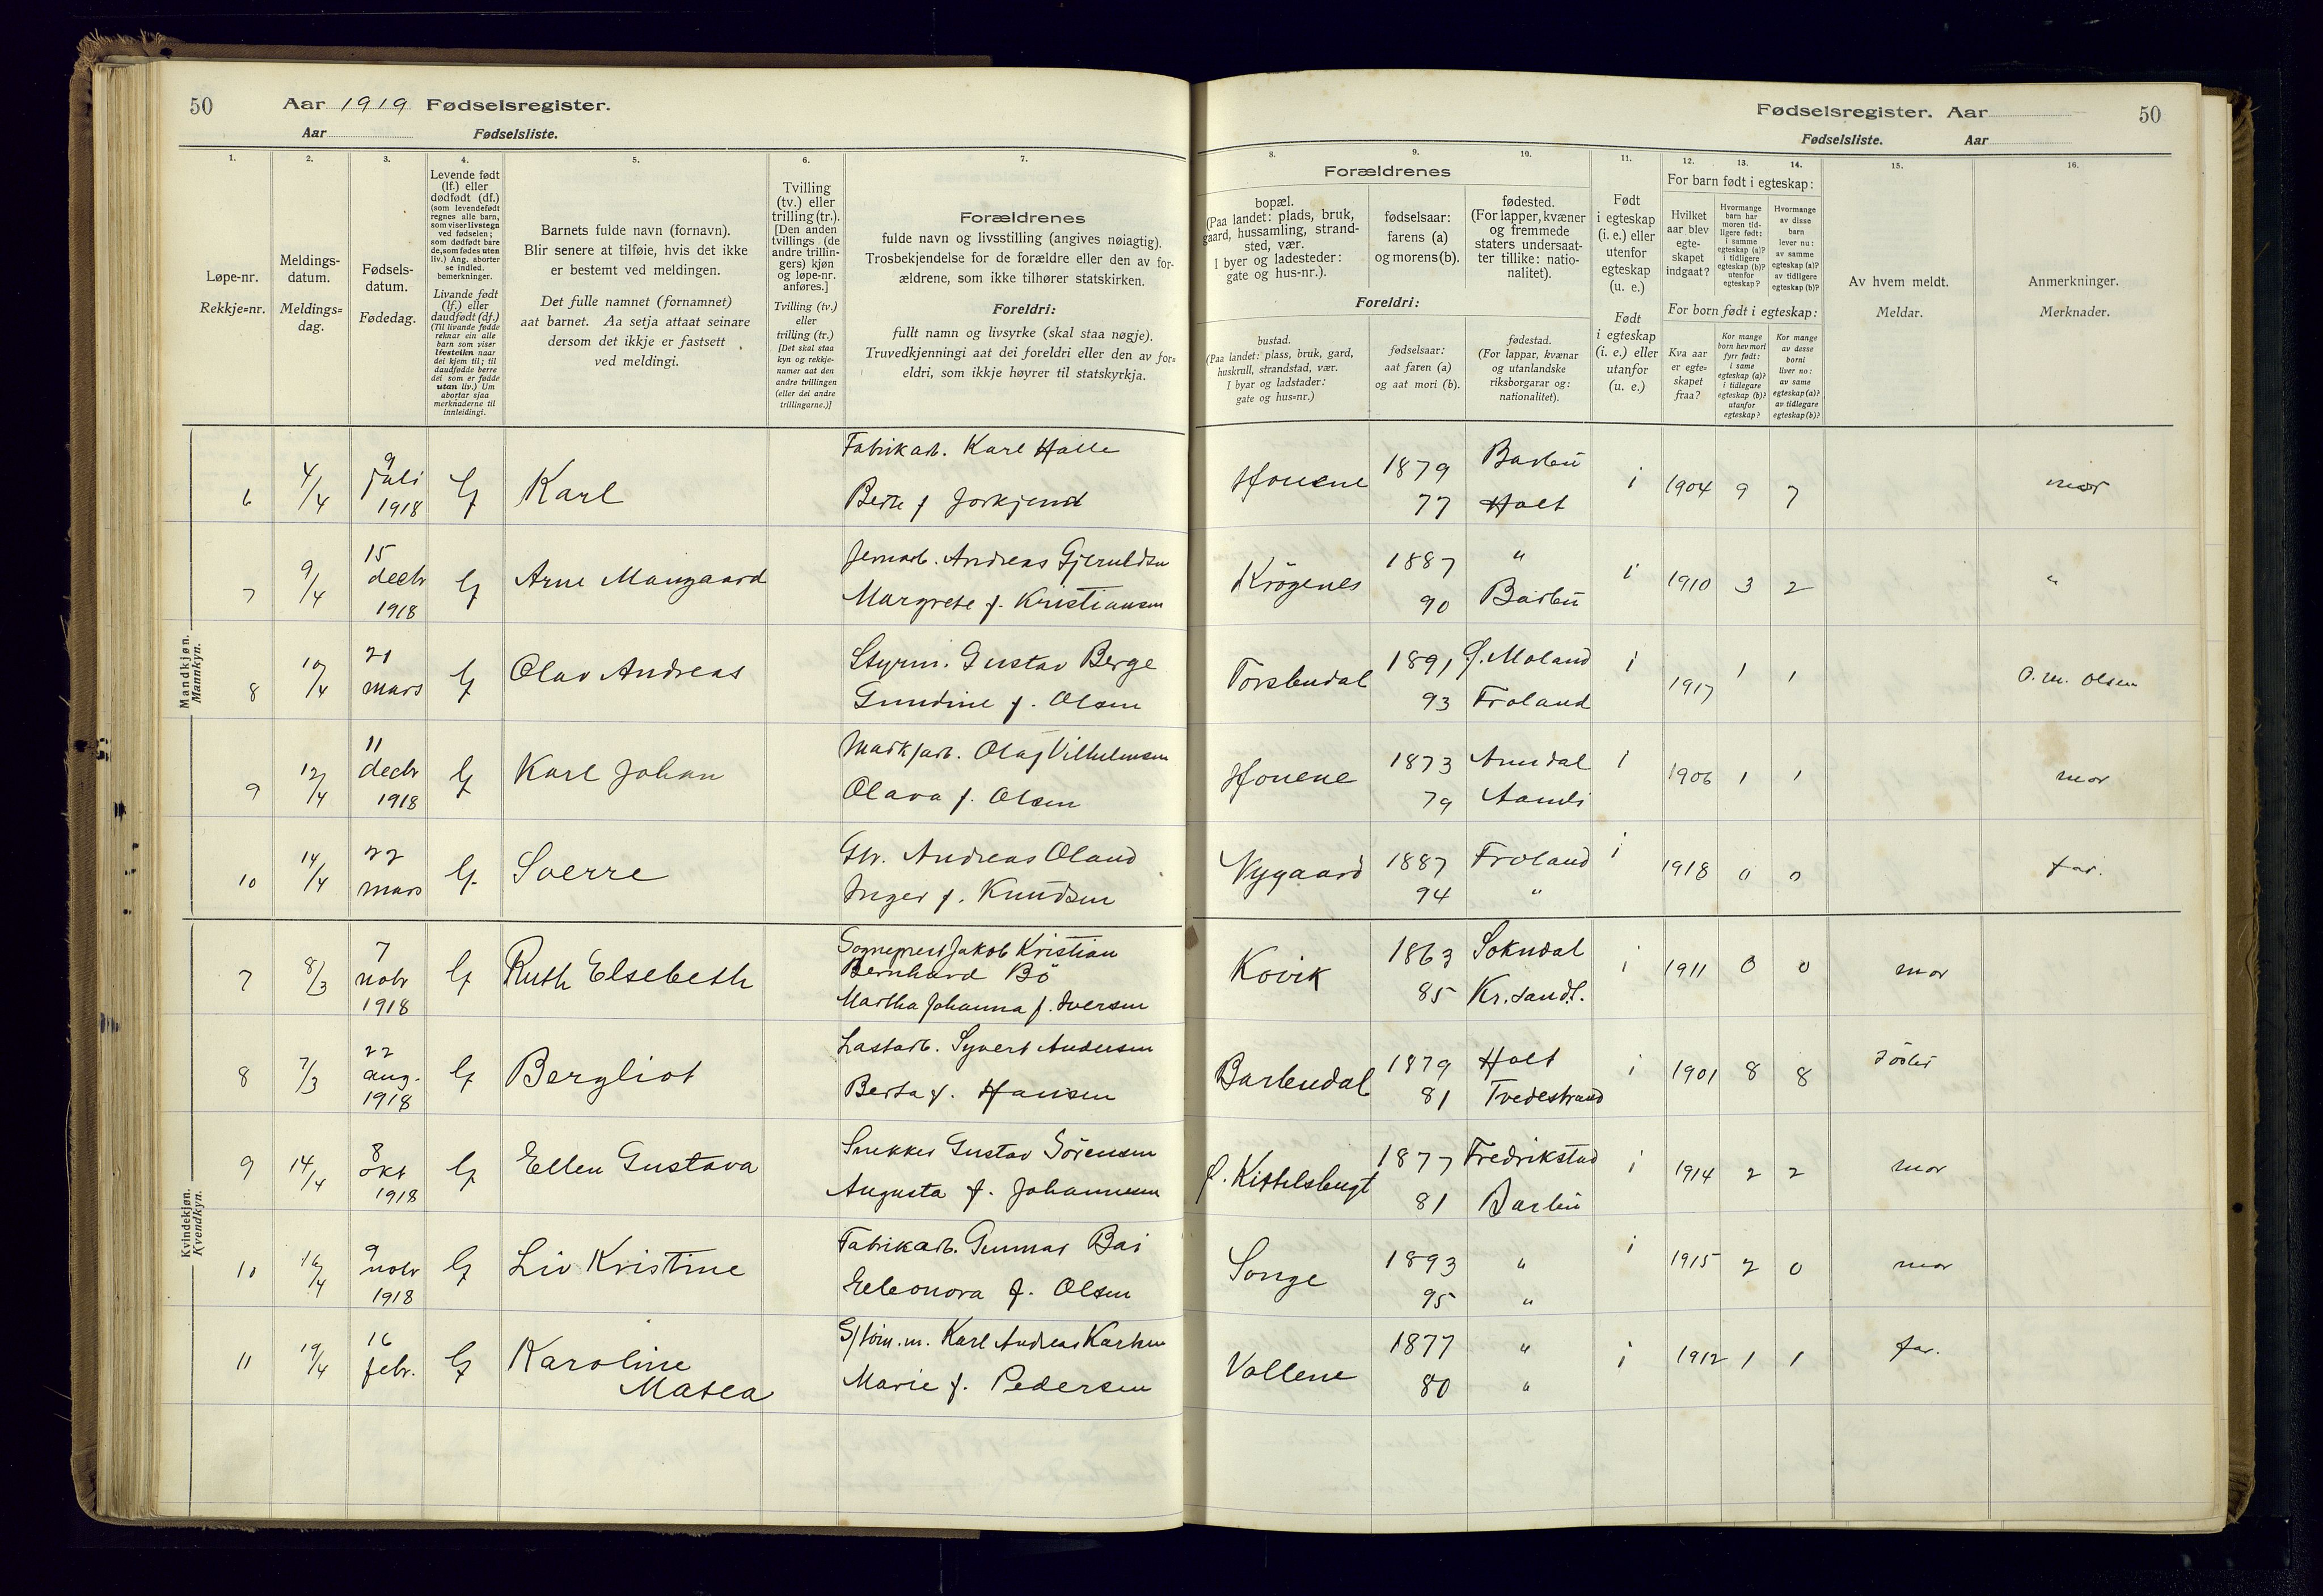 50 Aar 1919 Fødselsregister.
Aar Fødselsliste.
Fødselsregister. Aar 50
Fødselsliste. Aar
1. 2. 3. 4. 5. 6. 7.
8. 9. 10. 11. 12. 13. 14. 15. 16.
Løpe-nr.
Rekkje=nr.
Meldings-
datum.
Meldings=
dag.
Fødsels-
datum.
Fødedag.
Levende født
(lf.) eller
dødfødt (df.)
(som levendefødt
regnes alle barn,
som viser livstegn
ved fødselen;
som dødfødt bare
de, som fødes uten
liv.) Ang. aborter
se indled.
bemerkninger.
Livande født
(lf.) eller
daudfødt (df.)
(Til livande fødde
reknar ein alle
barn som viser
livsteikn naar
dei kjem til; til
daudfødde berre
dei som er fødde
utan liv.) Um
abortar sjaa
merknaderne til
innleidingi.
Barnets fulde navn (fornavn).
Blir senere at tilføie, hvis det ikke
er bestemt ved meldingen.
Det fulle namnet (fornamnet)
aat barnet. Aa setja attaat seinare
dersom det ikkje er fastsett
ved meldingi.
Tvilling
(tv.) eller
trilling (tr.).
[Den anden
tvillings (de
andre trillin-
gers) kjøn
og løpe-nr.
anføres.]
Tvilling (tv.)
eller
trilling (tr.)
[Det skal staa
kyn og rekkje-
numer aat den
andre tvillingen
(eller dei andre
trillingarne.)]
Forældrenes
fulde navn og livsstilling (angives nøiagtig).
Trosbekjendelse for de forældre eller den av for-
ældrene, som ikke tilhører statskirken.
Foreldri:
fullt namn og livsyrke (skal staa nøgje).
Truvedkjenningi aat dei foreldri eller den av for=
eldri, som ikkje høyrer til statskyrkja.
Forældrenes
bopæl.
(Paa landet: plads, bruk,
gaard, hussamling, strand-
sted, vær.
I byer og ladesteder:
gate og hus-nr.).
fødselsaar:
farens (a)
og morens (b).
fødested.
(For lapper, kvæner
og fremmede
staters undersaat-
ter tillike: natio-
nalitet).
Foreldri:
bustad.
(Paa landet: plass, bruk, gard,
huskrull, strandstad, vær.
I byar og ladstader:
gate og hus-nr.)
fødselsaar:
aat faren (a)
og aat mori (b).
fødestad.
(For lappar, kvænar
og utanlandske
riksborgarar og:
nationalitet).
Født
i egteskap
(i. e.) eller
utenfor
egteskap
(u. e.)
Født
i egteskap
(i. e.) eller
utanfor
(u. e.)
For barn født i egteskap:
Hvilket
aar blev
egte-
skapet
indgaat?
Hvormange
barn har
moren tid-
ligere født:
i samme
egteskap (a)?
i tidligere
egteskap (b)?
utenfor
egteskap?
Hvormange
av disse
barn
lever nu:
av samme
egteskap (a)?
av tidligere
egteskap (b)?
For born født i egteskap:
Kva aar
er egte=
skapet
fraa?
Kor mange
born hev mori
fyrr født:
i same
egteskap (a)?
i tidlegare
egteskap (b)?
utanfor
egteskap?
Kor mange
av desse
borni
liver no:
av same
egteskap (a)?
av tidlegare
egteskap (b)?
Av hvem meldt.
Meldar.
Anmerkninger.
Merknader.
Mandkjøn.
Mannkyn.
6 4/4 9 juli 1918 lf Karl Fabrikarb. Karl Halle
Houene 1879 Barbu i 1904 9 7 mor
77 Holt
7 9/4 15 decbr 1918 lf Arne Maugaard Jernarb. Andreas Gjeruldsen
Margrete f. Kristiansen
Krögenes 1887 " i 1910 3 2 "
90 Barbu
8 10/4 21 mars lf Olav Andreas Styrm. Gustav Berge
Gundine f. Olsen
Torsbudal 1891 Ö. Moland i 1917 1 1 O. M. Olsen
93 Froland
9 12/4 11 decbr 1918 lf Karl Johan Olaf Vilhelmsen
Olava f. Olsen
Houene 1873 Arendal i 1906 1 1 mor
79 Aamli
10 14/4 22 mars lf. Sverre Gbr. Andreas Oland
Inger f. Knudsen
Nygaard 1887 Froland i 1918 0 0 far.
94 "
Kvindekjøn.
Kvendkyn.
7 8/3 7 nobr 1918 lf Ruth Elsebeth Sogneprest Jakob Kristian
Bernhard Bö
Martha Johanna f. Iversen
Kovik 1863 Sokndal i 1911 0 0 mor
85 Kr.sand S.
8 7/3 22 aug. 1918 lf Bergliot Lastarb. Syvert Andersen
Berta f. Hansen
Barbudal 1879 Holt i 1901 8 8
81 Tvedestrand
9 14/4 8 okt 1918 lf Ellen Gustava Snekker Gustav Sörensen
Augusta f. Johannesen
Ö. Kittelsbugt 1877 Fredrikstad i 1914 2 2 mor
81 Barbu
10 16/4 9 nobr 1918 lf Liv Kristine Fabrikarb. Gunnar Bai
Eleonora f. Olsen
Songe 1893 " i 1915 2 0 mor
95 "
11 19/4 16 febr. lf Karoline Matea Karl Andreas
Marie f. Pedersen
Vollene 1877 " i 1912 1 1 far.
80 "